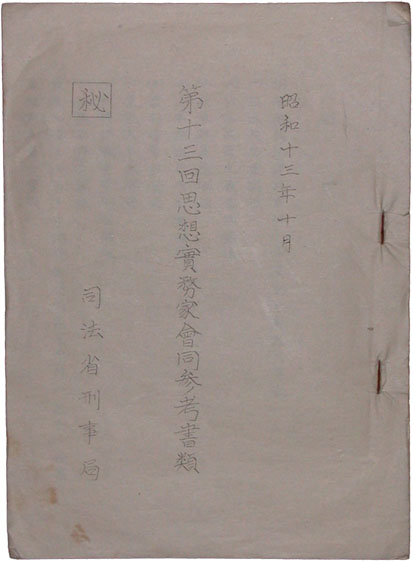 昭和十三年十月
第十三回思想實務家會同參考書類
秘
司法省刑事局